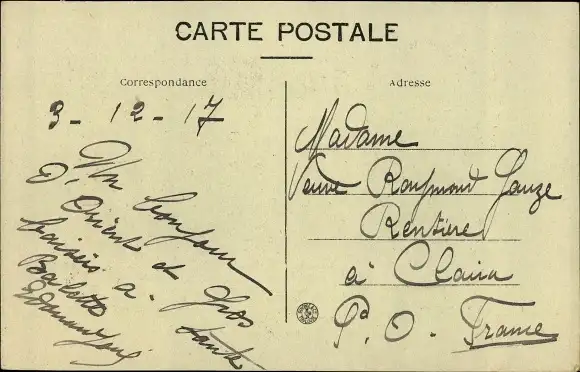 CARTE POSTALE
Correspondance
Adresse
3 - 12 - 17
Un bonjour
d'Orient et gros
baisers a tante
Babette
Madame
Veuve Raymond Gauze
Rentiere
à Claira
P.d O - France